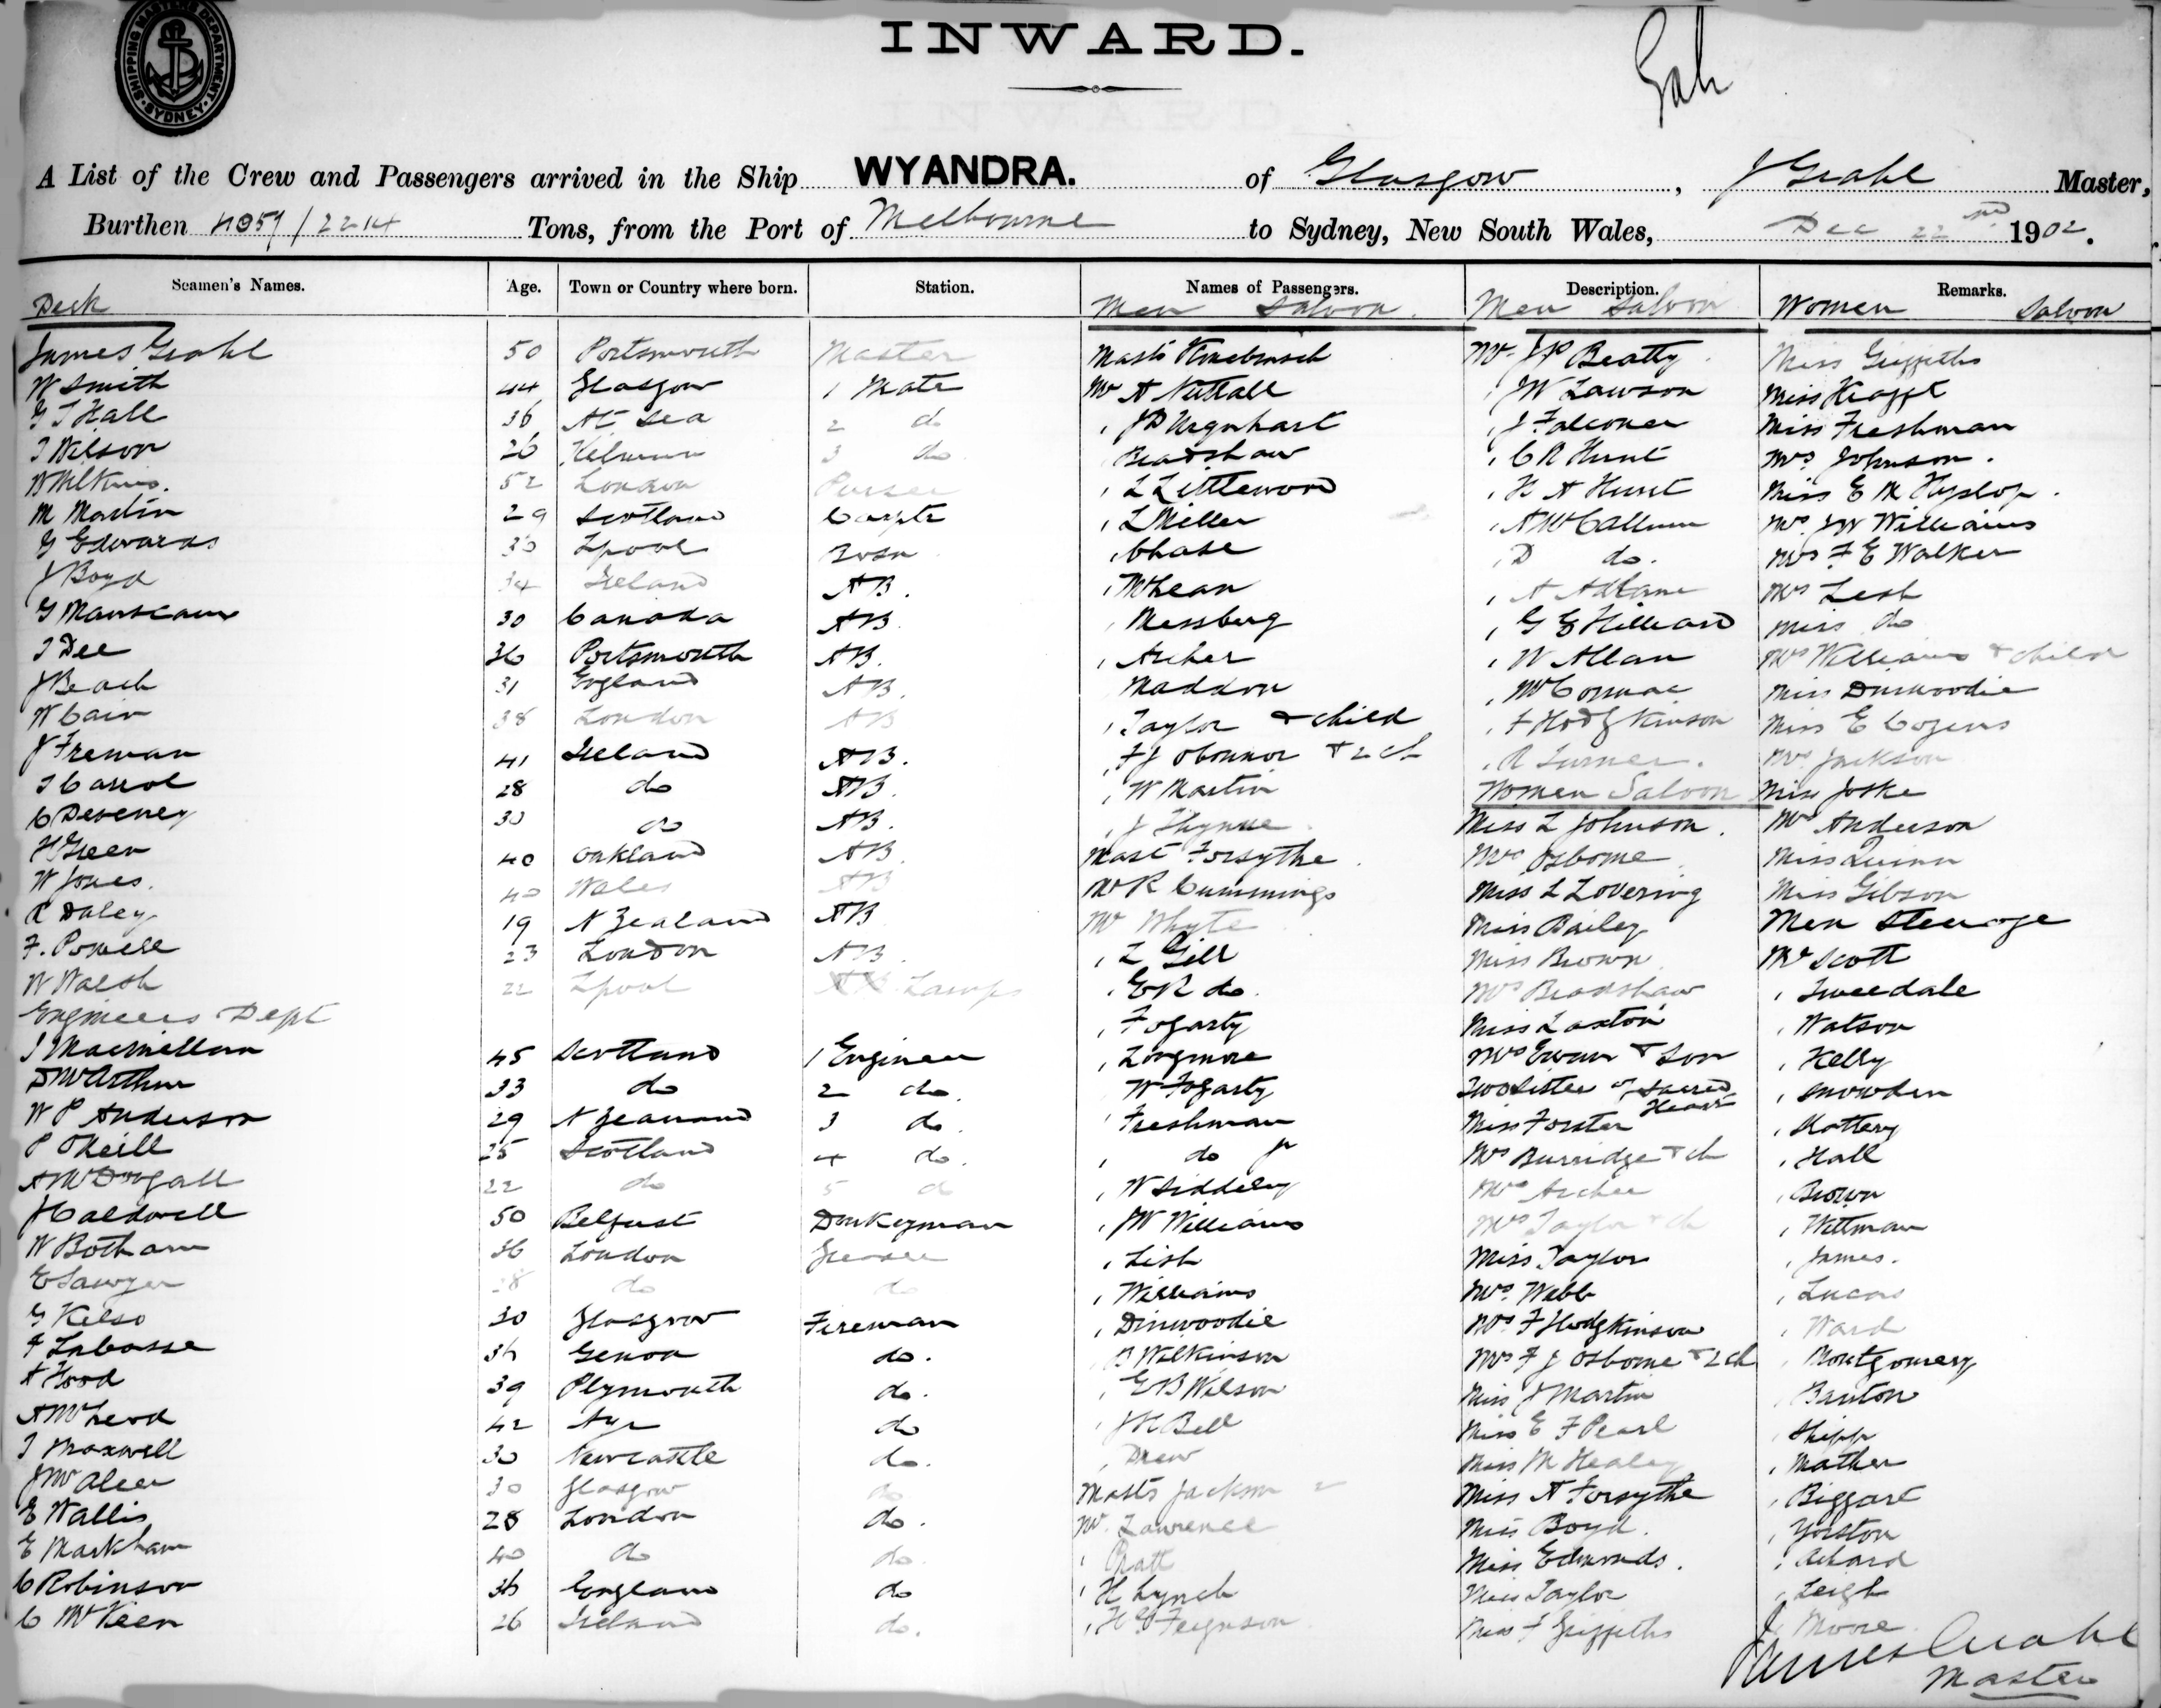 SHIPPING MASTERS DEPARTMENT SYDNEY
INWARD.
A List of the Crew and Passengers arrived in the Ship WYANDRA. of Glasgow, J Grahl Master,
Burthen 4059/2214 Tons, from the Port of Melbourne to Sydney, New South Wales, Dec 22nd 1902.
Seamen's Names. Age. Town or Country where born. Station. Names of Passengers. Description. Remarks.
Deck Men Saloon. Men Saloon Women Saloon
James Grahl 50 Portsmouth Master Masts Mr J P Beatty. Miss Griffiths
W Smith 44 Glasgow 1 Mate Mr A Nuttall " J W Lawson Miss
G T Hall 36 At Sea 2 do " J D Urquhart " J Falconer Miss Freshman
T Wilson 26 3 do " Bradshaw " C R Hunt Mrs Johnson.
Wilkins. 52 London Purser " L Littlewood " H A Hunt Miss E M Hyslop.
M Martin 29 Scotland Carptr " L Miller " A McCallum Mrs J W Williams
G Edwards 30 Lpool Bosn " Chase " D do. Mrs F E Walker
J Boyd 34 Ireland AB. " McLean " A Mrs Lesh
G 30 Canada AB " Messberg " G E Hilliard Miss do
T Dee 36 Portsmouth AB. " Archer " W Allan Mrs Williams & child
J Beach 31 England AB. Maddon " McCormac Miss Dinwoodie
W Cain 38 London AB " Taylor & child " F Hodgkinson Miss E Cozens
J Freman 41 Ireland AB. " F J OConnor & 2 ch " R Turner. Mrs Jackson
T Carrol 28 do AB. " W Martin Women Saloon Miss Joske
C Deveney 30 do AB. " J Thynne Miss L Johnson. Mrs Anderson
H Green 40 Oakland AB. Mast Forsythe Mrs Osborne Miss Quinn
W Jones. 40 Wales AB Mr R Cummings Miss L Lovering Miss Gibson
R Daley 19 N Zealand AB Mr Whyte Miss Bailey Men Steerage
F. Powell 23 London AB. " L Gill Miss Brown Mr Scott
W Walsh 22 Lpool Lamps " E R do. Mrs Bradshaw " Tweedale
Engineers Dept " Fogarty Miss Laxton " Watson
J Macmillan 45 Scotland 1 Engineer " Longmore Mrs Ewan & Son " Kelly
D McArthur 33 do 2 do. " W Fogarty Two Sister of Sacred Heart " Snowden
W P Anderson 29 N Zealand 3 do. " Freshman Miss Forster " Slattery
P ONeill 25 Scotland 4 do. " do Jr Mrs Burridge & ch " Hall
A McDougall 22 do 5 d " W Siddeley Mrs Archer " Brown
J Caldwell 50 Belfast Donkeyman " J W Williams Mrs Taylor & ch " Wittman
W Botham 36 London Greaser " Lish Miss Taylor " James.
E Sawyer 28 do do " Williams Mrs Webb " Lucas
G Kelso 30 Glasgow Fireman " Dinwoodie Mrs F Hodgkinson " Ward
F Labasse 36 Genoa do. " Wilkinson Mrs F J Osborne & 2 ch " Montgomery
A Hood 39 Plymouth do. " E B Wilson Miss J Martin " Banton
A McLeod 42 Ayr do " J R Bell Miss E F Pearl " Shipp
T Maxwell 30 Newcastle do. " Drew Miss M Healey " Mather
J McAleer 30 Glasgow do Masts Jackson 2 Miss A Forsythe " Biggart
E Wallis 28 London do. Mr. Lawrence Miss Boyd. " Yorston
E Markham 40 do do. " Pratt Miss Edmonds. " Achard
C Robinson 36 England do " H Lynch Miss Taylor " Leigh
C McKeen 26 Ireland do. " Ferguson Miss F Griffiths " Moore
James Grahl
Master